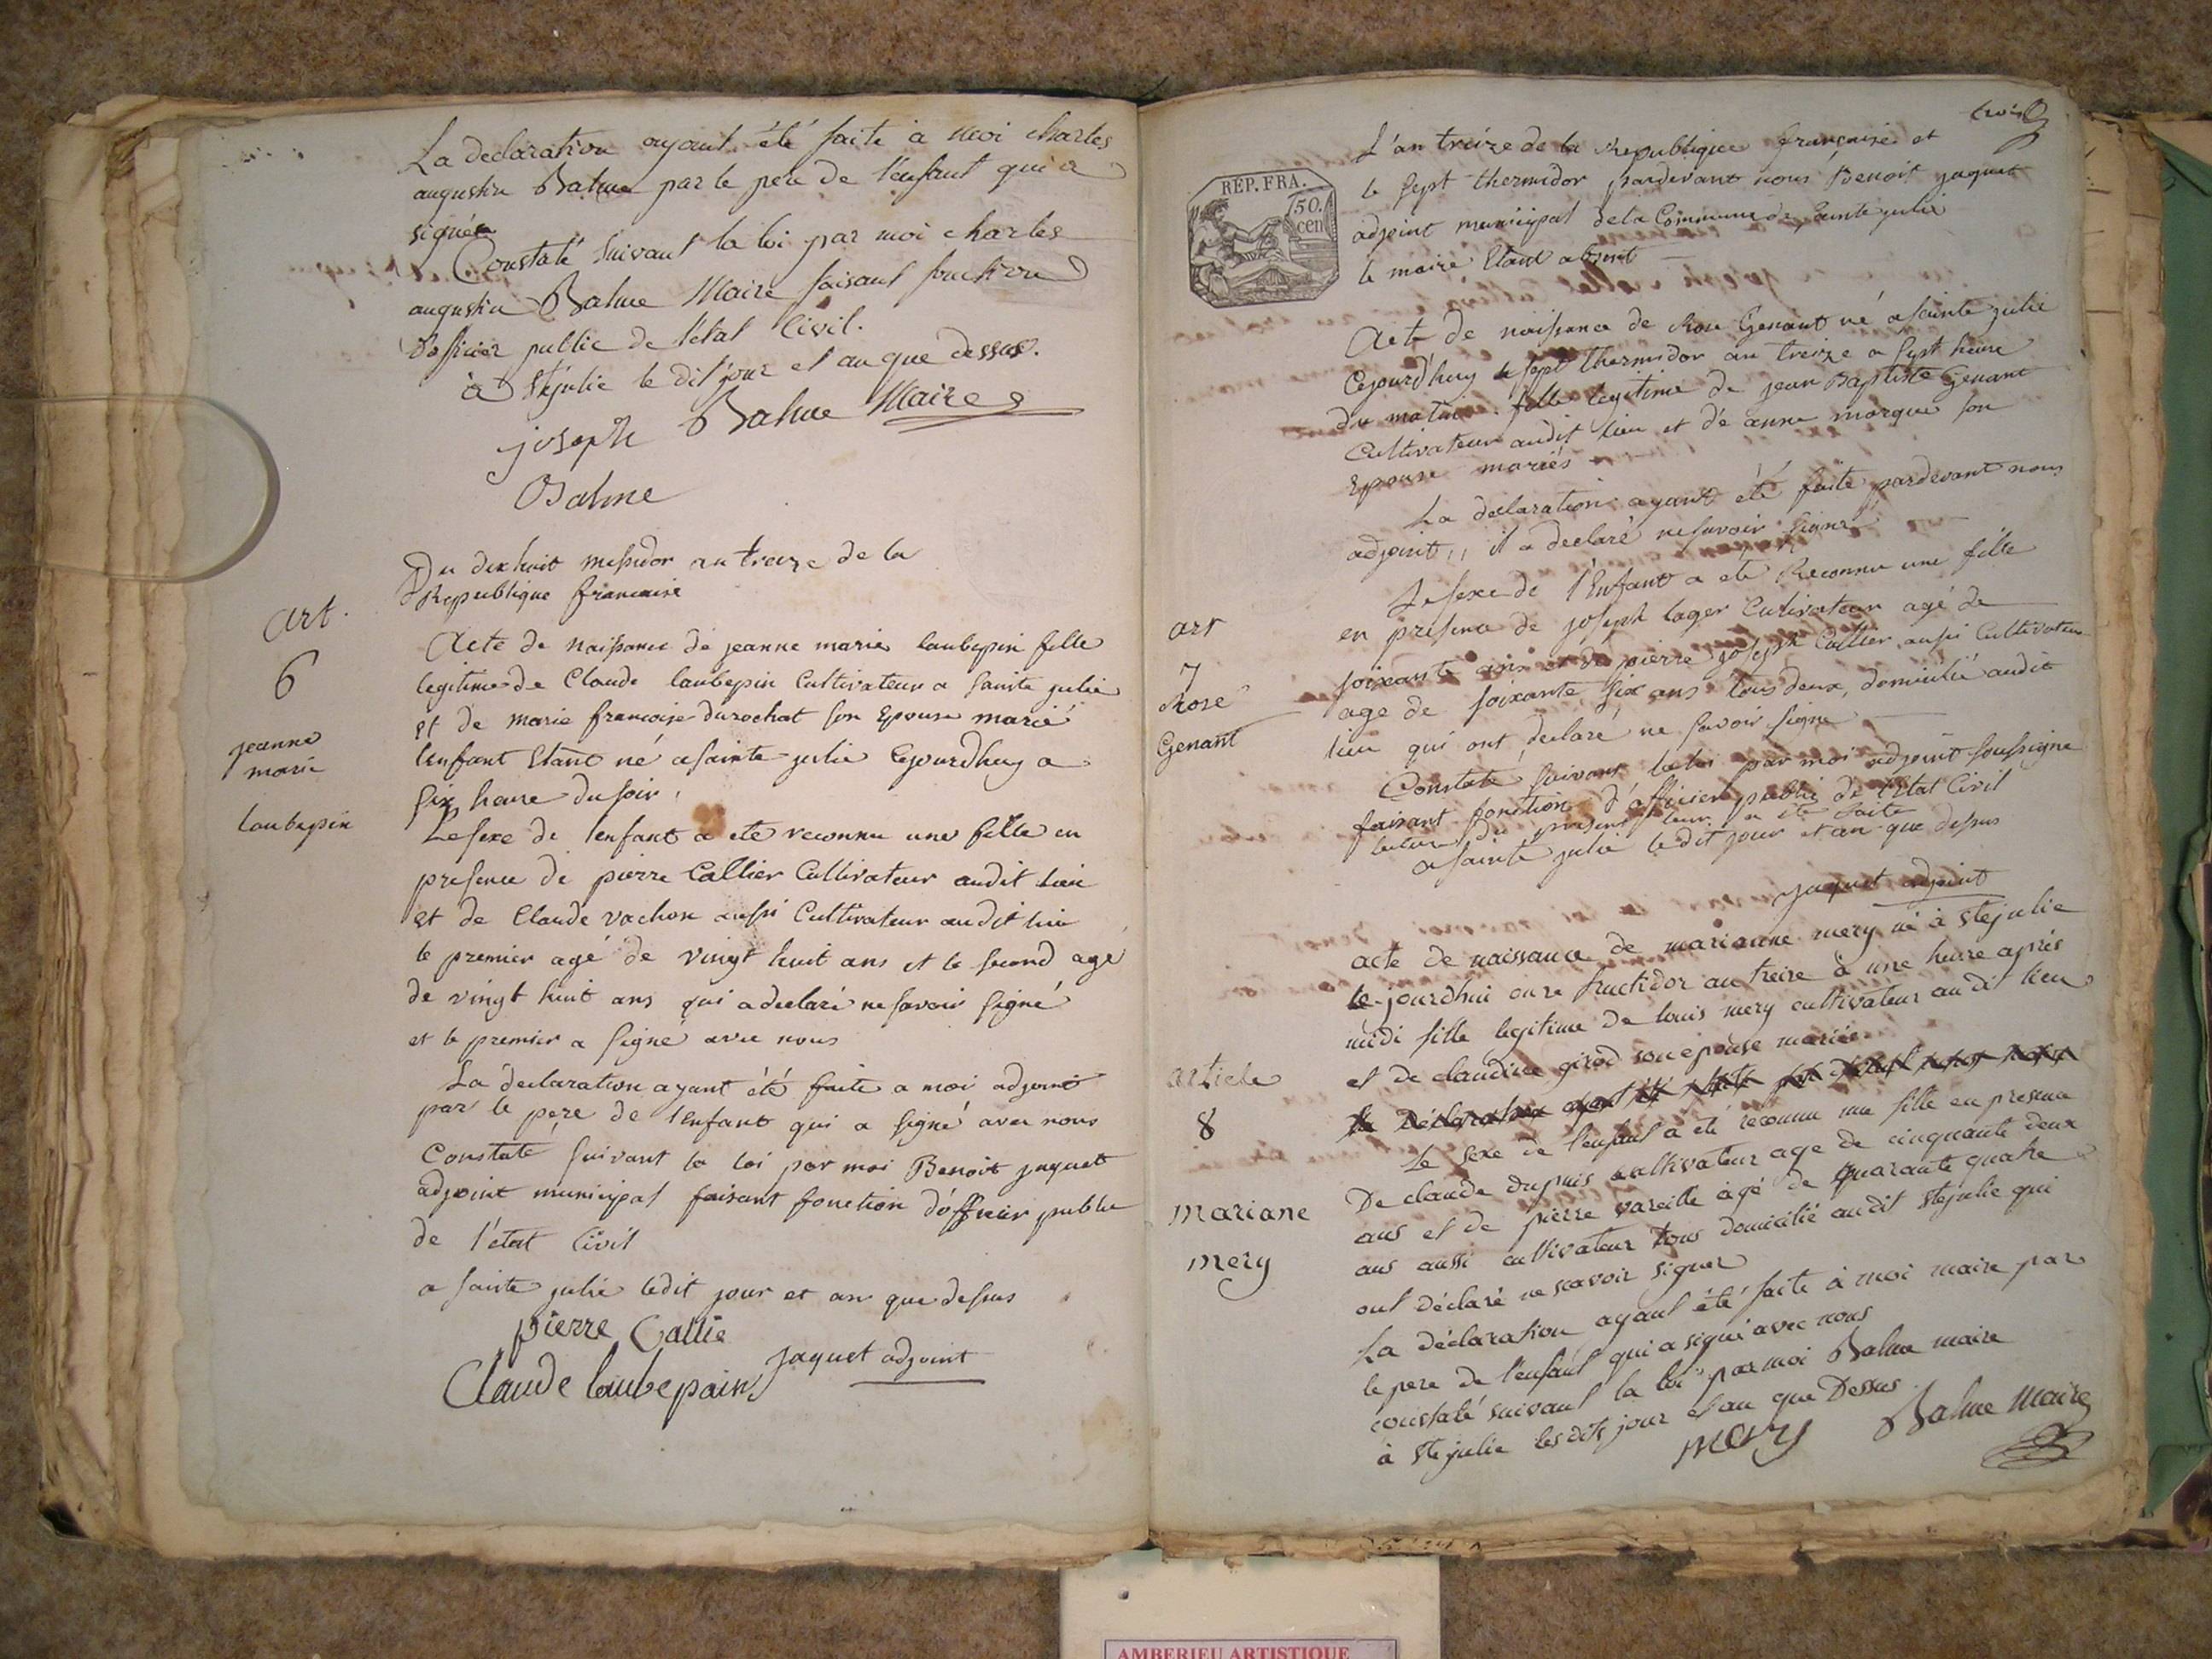 La declaration ayant été faite a moi charles
augustin Balme par le pere de l'enfant qui a
signé
Constaté suivant la loi par moi charles
augustin Balme Maire faisant fonction
d'officier public de l'etat Civil.
à Ste julie le dit jour et an que dessus.
joseph Balme Maire
Balme
Du dixhuit messidor an treize de la
Republique francaise
art.
6
jeanne
marie
laubepin
Acte de naissance de jeanne marie laubepin fille
legitime de Claude laubepin Cultivateur a sainte julie
et de marie francoise durochat son Epouse marié
l'enfant Etant né a sainte julie Cejourdhuy a
six heure du soir
Le sexe de lenfant a ete reconnu une fille en
presence de pierre Callier Cultivateur audit lieu
et de Claude vachon aussi Cultivateur audit lieu
le premier agé de vingt huit ans et le second agé
de vingt huit ans qui a declaré ne savoir signé
et le premier a signé avec nous
La declaration ayant été faite a moi adjoint
par le pere de l'Enfant qui a signé avec nous
Constaté suivant la loi par moi Benoit jaquet
adjoint municipal faisant fonction d'officier public
de l'état Civil
a sainte julie ledit jour et an que dessus
pierre Callie
Claude laubepain jaquet adjoint
trois
REP. FRA.
50.
cen
L'an treize de la Republique française et
le sept thermidor pardevant nous Benoit jaquet
adjoint municipal de la Commune de sainte julie
le maire Etant absent
art
7
Rose
Genant
Acte de naissance de Rose Genant né a sainte julie
Cejourd'huy le sept thermidor an treize a sept heure
du matin fille legitime de jean Baptiste Genant
Cultivateur audit lieu et de anne marque son
Epouse mariés
La declaration ayant été faite pardevant nous
adjoint, il a declaré ne savoir signé
Le sexe de l'Enfant a ete Reconnu une fille
en presence de joseph lager Cultivateur agé de
soixante ans et de pierre joseph Callier aussi Cultivateur
age de soixante six ans tous deux domicilié audit
lieu qui ont declaré ne savoir signe
Constaté suivant la loi par moi adjoint soussigne
faisant fonction d'officier public de l'Etat Civil
lecture du present leur a été faite
a sainte julie ledit jour et an que dessus
jaquet adjoint
article
8
mariane
mery
acte de naissance de marianne mery né à Ste julie
le jourdhui onze fructidor an treize à une heure après
midi fille legitime de louis mery cultivateur audit lieu
et de claudine girod son epouse mariée
la Déclaration ayant été faite
Le sexe de l'enfant a été reconnu une fille en presence
De claude dupuis cultivateur age de cinquante deux
ans et de pierre vareille agé de quarante quatre
ans aussi cultivateur tous domicilié audit Ste julie qui
ont déclaré ne scavoir signer
La déclaration ayant été faite à moi maire par
le pere de l'enfant qui a signé avec nous
constaté suivant la loi par moi Balme maire
à Ste julie les dits jour et an que Dessus
mery Balme Maire
AMBERIEU ARTISTIQUE